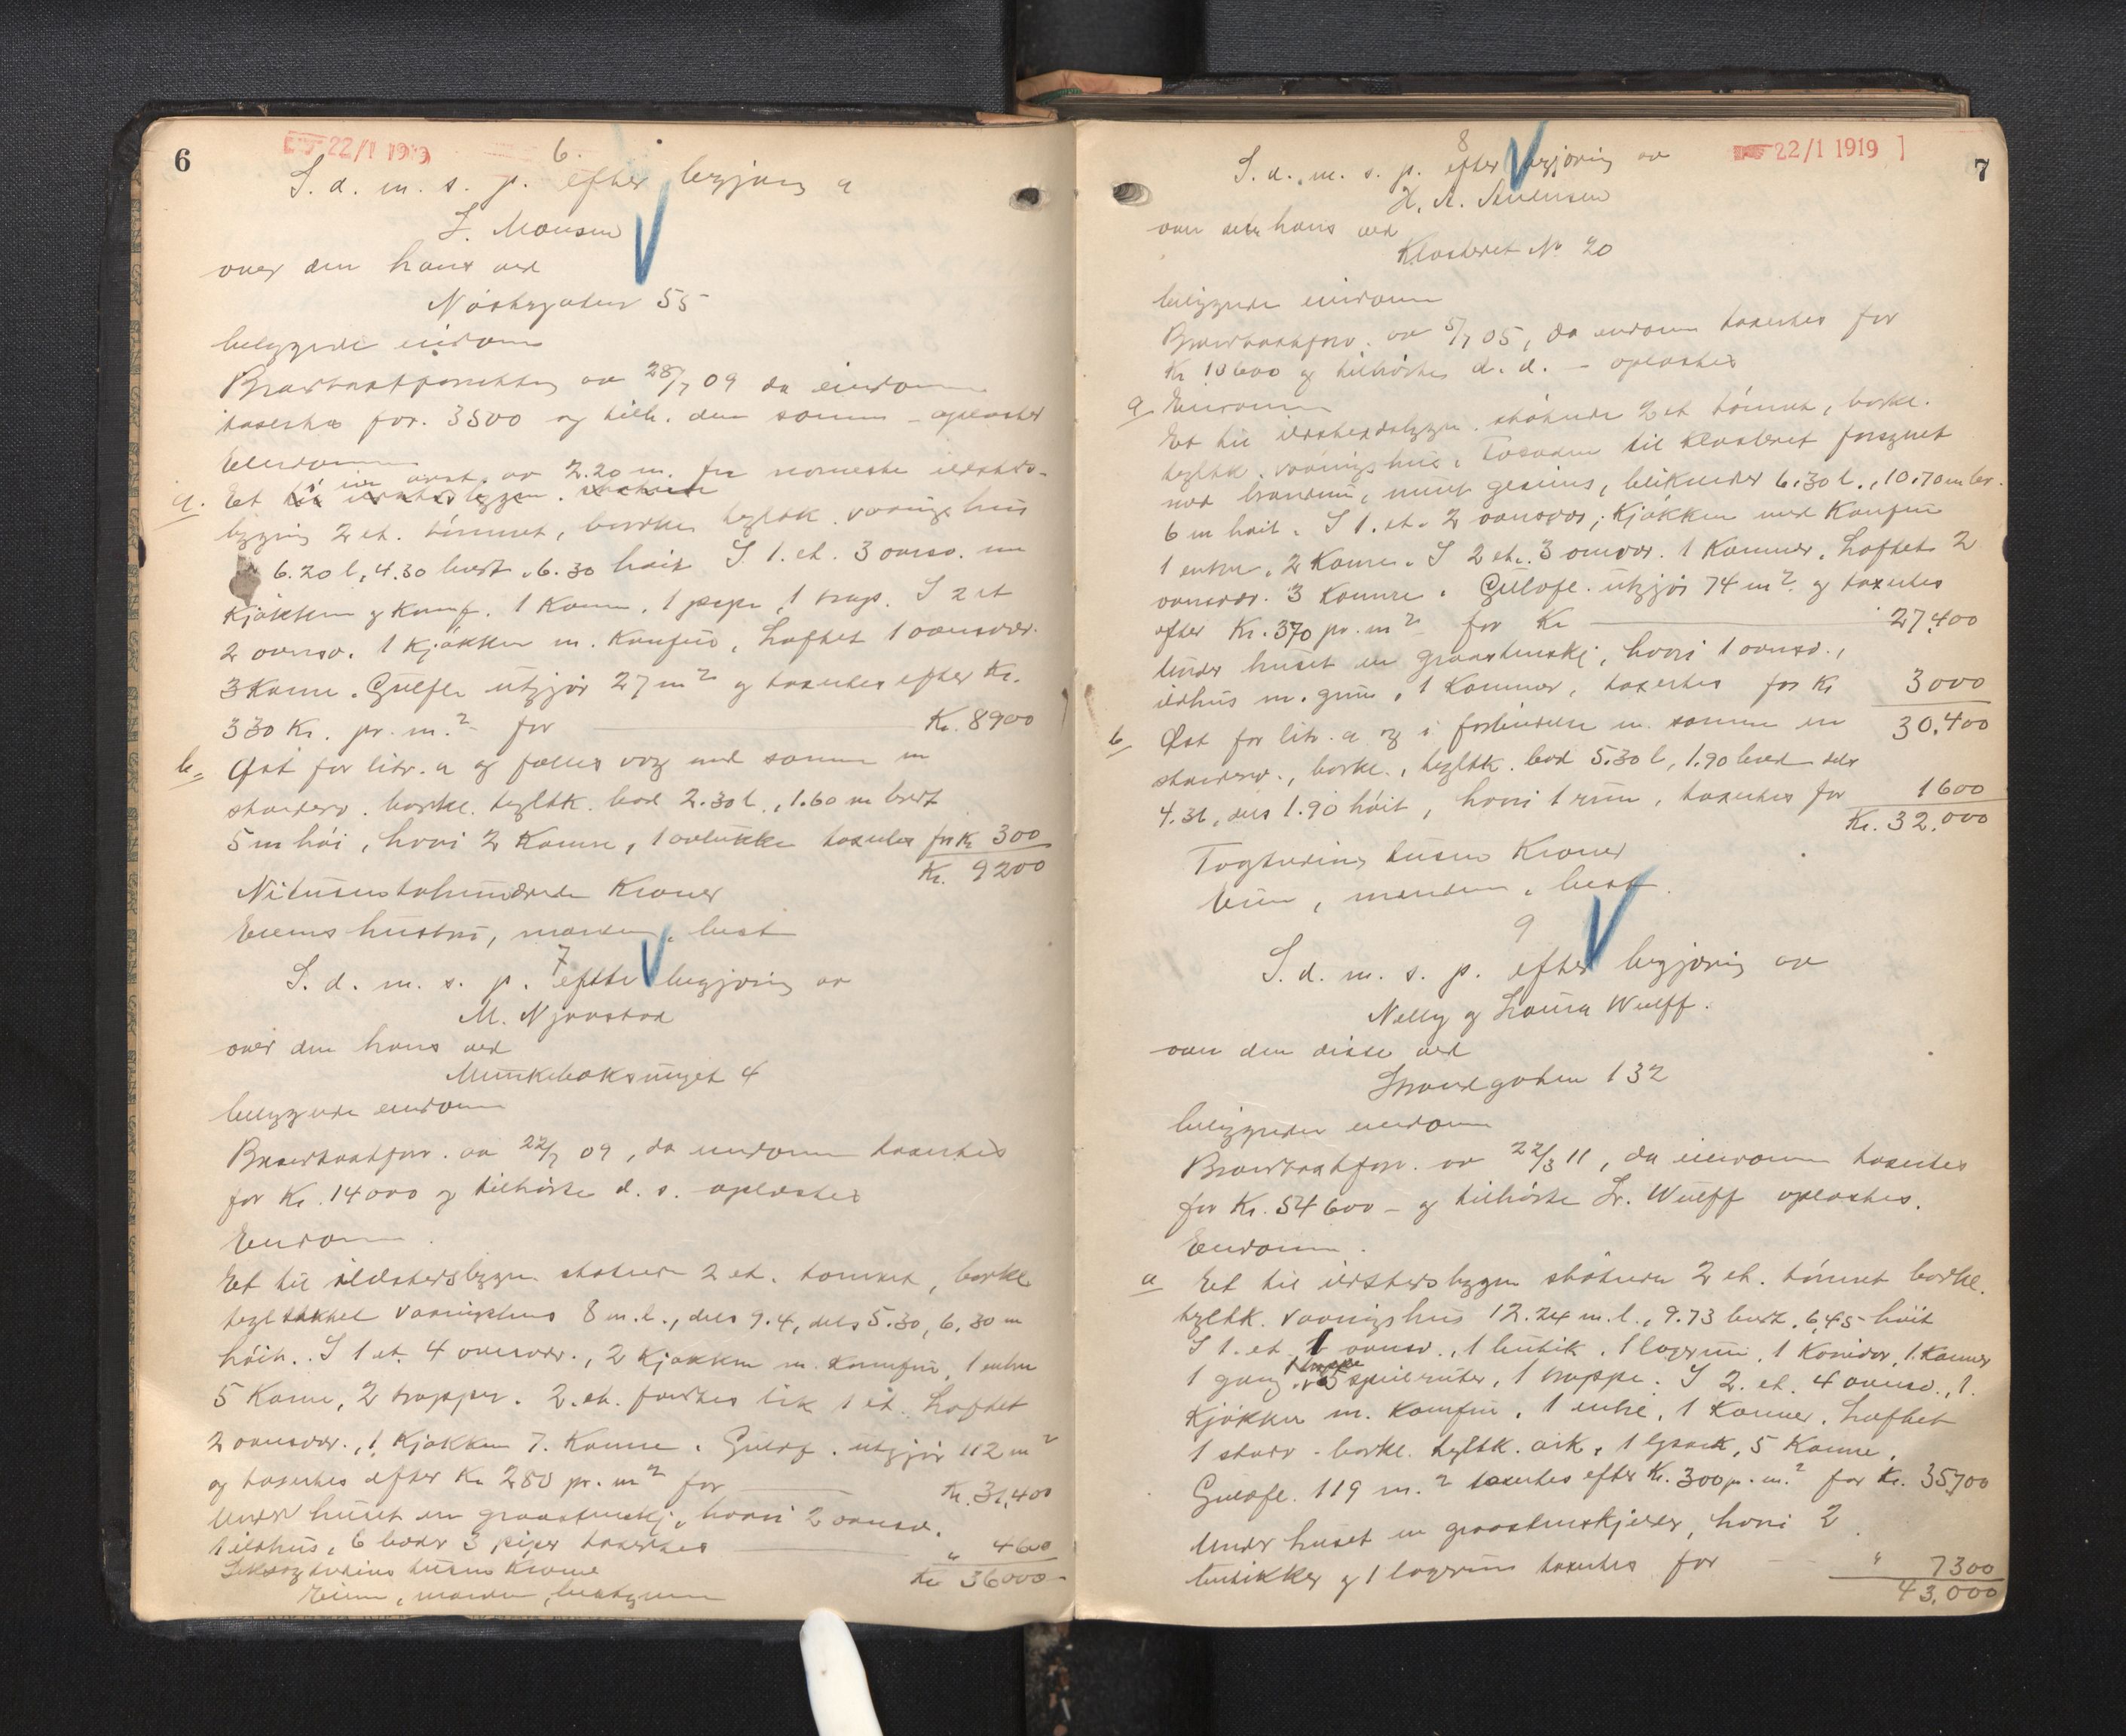 6
22/1 1919
6.
S. d. m. s. p. efter begjæring a
J. Monsen
over den hans ved
Nøstegaten 55
beliggende eiendom
Brandtaxtforretning av 28/7 09 da eiendommen
taxertes for. 3500 og tilh. den samme - oplæstes
Eiendommen
i en avst. av 2.20 m. fra nærmeste ildsteds-
a. Et til ildstedsbyggn. stødende
bygning 2 et. tømmret, bordkl. tegltk. vaaningshus
6.20 l, 4.30 bredt, 6.30 høit I 1. et. 3 ovnsv. em
Kjøkken og Komf. 1 Kammer, 1 pipe, 1 trap. I 2 et
2 ovnsv. 1 Kjøkken m. Komfur, Loftet 1 ovnsvær.
3 Kamre. Gulvfl. utgjør 27 m² og taxertes efter Kr.
330 Kr. pr. m.² for Kr. 8900
b. Øst for litr. a og fælles væg med samme en
standerv. bordkl. tegltk. bod 2.30 l., 1.60 m bredt
5 m høi, hvori 2 Kamre, 1 avlukke taxertes for Kr 300
Kr. 9200
Nitusentohundrede Kroner
Eierens hustru, manden, best
7
S. d. m. s. p. efter begjæring av
M. Njaastad
over den hans ved
Munkebæksmuget 4
beliggende eiendom
Brandtaxtforr. av 22/7 09, da eiendommen taxertes
for Kr. 14000 og tilhørte d. s. oplæstes
Eiendommen.
Et til ildstedsbyggn stødende 2 et. tømret, bordkl.
tegltækket vaaningshus 8 m. l., dels 9.4, dels 5.30, 6.30 m
høit. I 1 et. 4 ovnsvær., 2 Kjøkken m. Komfur, 1 entre
5 Kamre, 2 trapper. 2. et. fordeles lik 1 et. Loftet
2 ovnsvær., 1 Kjøkken 7. Kamre. Gulvfl. utgjør 112 m²
og taxertes efter Kr 280 pr. m² for Kr. 31,400
Under huset en graastenskj. hvori 2 ovnsv.
1 ildhus, 6 boder 3 piper taxertes " 4600
Seksogtredive tusen Kroner Kr 36000-
Eieren, manden, bestyreren
7
22/1 1919
8
S. d. m. s. p. efter begjæring av
H. A. Andersen
over den hans ved
Klosteret No 20
beliggende eiendom
Brandtaxtforr. av 5/7 05, da eiendommen taxertes for
Kr 10600 og tilhørtes d. d. - oplæstes
a Eiendommen
Et til ildstedsbyggn. stødende 2 et tømret, bordkl.
tegltk. vaaningshus. Facaden til Klosteret forsynet
med brandmur, muret gesims, blikrender 6.30 l., 10.70 m br.
6 m høit. I 1. et. 2 ovnsvær, Kjøkken med Komfur
1 entre, 2 Kamre. I 2 et. 3 ovnsvær. 1 Kammer. Loftet 2
ovnsvær. 3 Kamre. Gulvfl. utgjør 74 m² og taxertes
efter Kr. 370 pr. m² for Kr 27,400
Under huset en graastenskj, hvori 1 ovnsv.,
ildhus m. grue, 1 Kammer, taxertes for Kr 3000
30,400
b Øst for litr. a og i forbindelse m. samme en
standerv., bordkl., tegltk. bod 5.30 l, 1.90 bred dels
4.30, dels 1.90 høit, hvori 1 rum, taxertes for 1600
Kr. 32.000
Togtreti tusen Kroner
Eieren, manden, best.
9
S. d. m. s. p. efter begjæring av
Nelly og Laura Wulff.
over den disse ved
Strandgaten 132
beliggende eiendom
Brandtaxtforr. av 22/3 11, da eiendommen taxertes
for Kr. 54600 - og tilhørte Fr. Wulff oplæstes.
Eiendommen.
a Et til ildstedsbyggn stødende 2 et. tømret bordkl.
tegltk. vaaningshus 12.24 m. l., 9.73 bredt, 6,45 høit
I 1. et. 1 ovnsv., 1 butik, 1 lagerrum, 1 Koridor, 1. Kammer
1 trappe
1 gang, 5 speilruter, 1 trappe. I 2. et. 4 ovnsv., 1.
Kjøkken m. Komfur, 1 entre, 1 Kammer. Loftet
1 standv. bordkl. tegltk. ark, 1 lysark, 5 Kamre.
Gulvfl. 119 m.² taxertes efter Kr. 300 p. m.² for Kr. 35,700
Under huset en graastenskjelder, hvori 2
butikker og 1 lagerrum taxertes for " 7300
43,000